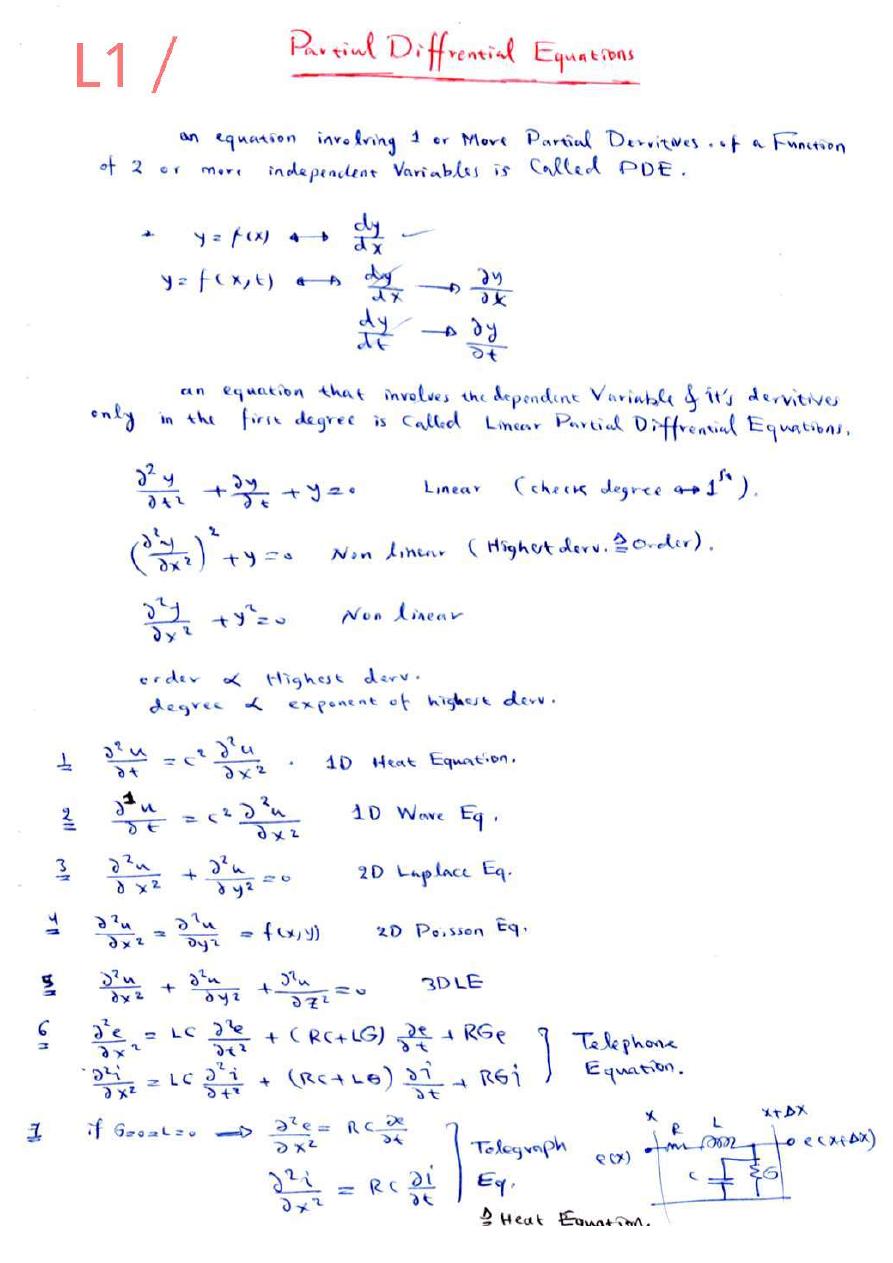 L1 /
Partial Diffrential Equations
an equation involving 1 or More Partial Dervitives of a Function
of 2 or more independent Variables is Called PDE.
* y = f(x) ↔ dy/dx ✓
y = f(x,t) ↔ dy/dx → ∂y/∂x
dy/dt → ∂y/∂t
an equation that involves the dependent Variable & it's dervitives
only in the first degree is Called Linear Partial Diffrential Equations.
∂²y/∂t² + ∂y/∂t + y = 0 Linear (check degree ↔ 1st).
(∂²y/∂x²)² + y = 0 Non linear (Highest derv. ≙ order).
∂²y/∂x² + y² = 0 Non linear
order ∝ Highest derv.
degree ∝ exponent of highest derv.
1 ∂²u/∂t = c² ∂²u/∂x² . 1D Heat Equation.
2 ∂¹u/∂t = c² ∂²u/∂x² 1D Wave Eq.
3 ∂²u/∂x² + ∂²u/∂y² = 0 2D Laplace Eq.
4 ∂²u/∂x² = ∂²u/∂y² = f(x,y) 2D Poisson Eq.
5 ∂²u/∂x² + ∂²u/∂y² + ∂²u/∂z² = 0 3DLE
6 ∂²e/∂x² = LC ∂²e/∂t² + (RC+LG) ∂e/∂t + RGe
∂²i/∂x² = LC ∂²i/∂t² + (RC+LG) ∂i/∂t + RGi
Telephone
Equation.
7 if G=0=L=0 → ∂²e/∂x² = RC ∂e/∂t
∂²i/∂x² = RC ∂i/∂t
Telegraph
Eq.
≙ Heat Equation.
x x+Δx
R L
e(x) e(x+Δx)
C G